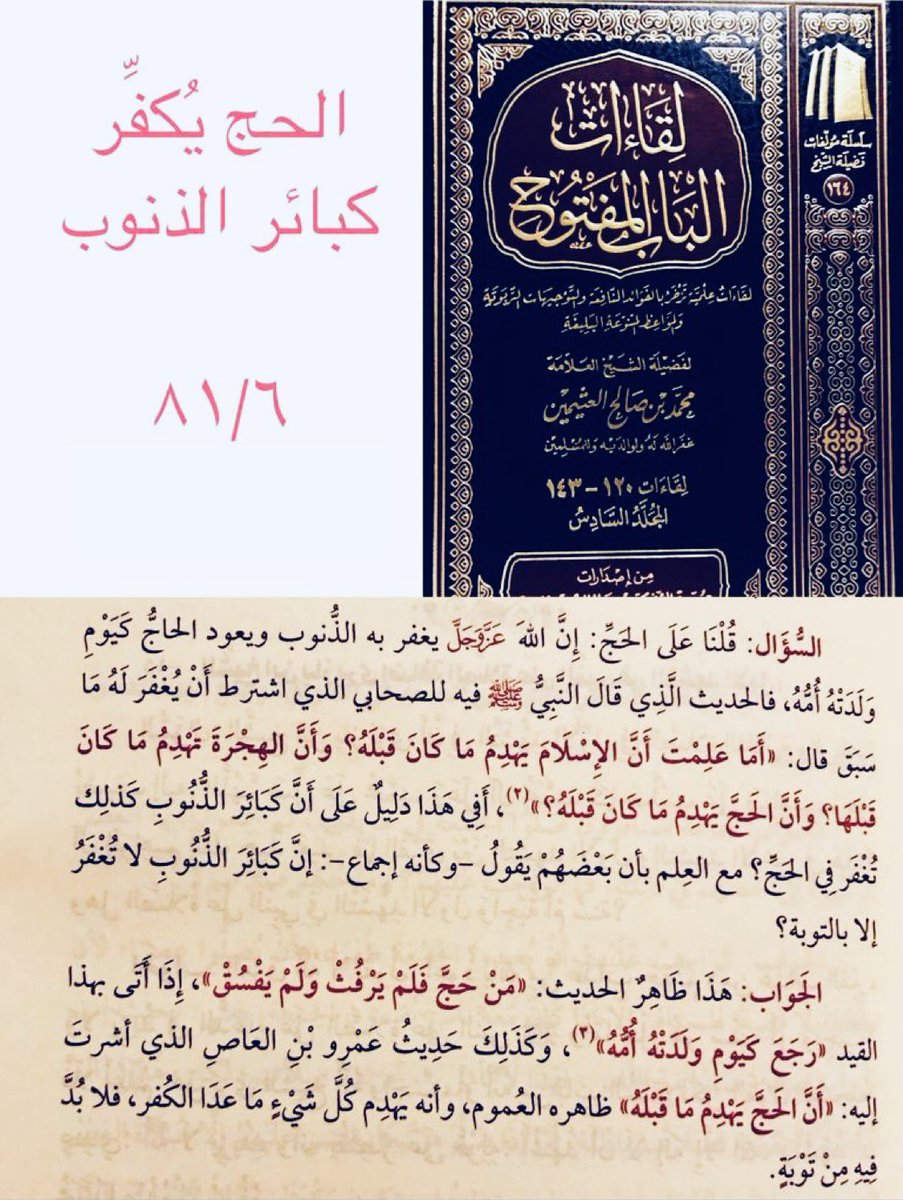 الحج يُكفِّر
كبائر الذنوب
٨١/٦
لِقَاءَات
البَابِ المَفْتُوح
لِقَاءَاتٌ عِلْمِيَّة تَزْخَرُ بِالفَوَائِدِ النَّافِعَة وَالتَّوْجِيهَاتِ التَّرْبَوِيَّة
وَالمَوَاعِظِ المُتَنَوِّعَة البَلِيغَة
لِفَضِيلَة الشَّيْخ العَلَّامَة
مُحَمَّد بْن صَالِح العُثَيْمِين
غَفَرَ اللهُ لَهُ وَلِوَالِدَيْهِ وَلِلمُسْلِمِين
لِقَاءَات ١٢٠ - ١٤٣
المُجَلَّدُ السَّادِسُ
مِن إِصْدَارَات
سِلْسِلَة مُؤَلَّفَات
فَضِيلَة الشَّيْخ
١٦٤
السُّؤَال: قُلْنَا عَلَى الحَجِّ: إِنَّ اللهَ عَزَّوَجَلَّ يغفر به الذُّنوب ويعود الحَاجُّ كَيَوْمِ
وَلَدَتْهُ أُمُّهُ، فالحديث الَّذِي قَالَ النَّبِيُّ ﷺ فيه للصحابي الذي اشترط أَنْ يُغْفَرَ لَهُ مَا
سَبَقَ قال: «أَمَا عَلِمْتَ أَنَّ الإِسْلَامَ يَهْدِمُ مَا كَانَ قَبْلَهُ؟ وَأَنَّ الهِجْرَةَ تَهْدِمُ مَا كَانَ
قَبْلَهَا؟ وَأَنَّ الحَجَّ يَهْدِمُ مَا كَانَ قَبْلَهُ؟»(٢)، أَفِي هَذَا دَلِيلٌ عَلَى أَنَّ كَبَائِرَ الذُّنُوبِ كَذلِك
تُغْفَر فِي الحَجِّ؟ مع العِلم بأن بَعْضَهُمْ يَقُولُ -وكأنه إجماع-: إنَّ كَبَائِرَ الذُّنُوبِ لا تُغْفَرُ
إلا بالتوبة؟
الجَوَاب: هَذَا ظَاهِرُ الحديث: «مَنْ حَجَّ فَلَمْ يَرْفُثْ وَلَمْ يَفْسُقْ»، إِذَا أَتَى بهذا
القيد «رَجَعَ كَيَوْمِ وَلَدَتْهُ أُمُّهُ»(٣)، وَكَذَلِكَ حَدِيثُ عَمْرِو بْنِ العَاصِ الذي أشرتَ
إليه: «أَنَّ الحَجَّ يَهْدِمُ مَا قَبْلَهُ» ظاهره العُموم، وأنه يَهْدِم كُلَّ شَيْءٍ مَا عَدَا الكُفر، فلا بُدَّ
فِيهِ مِنْ تَوْبَةٍ.